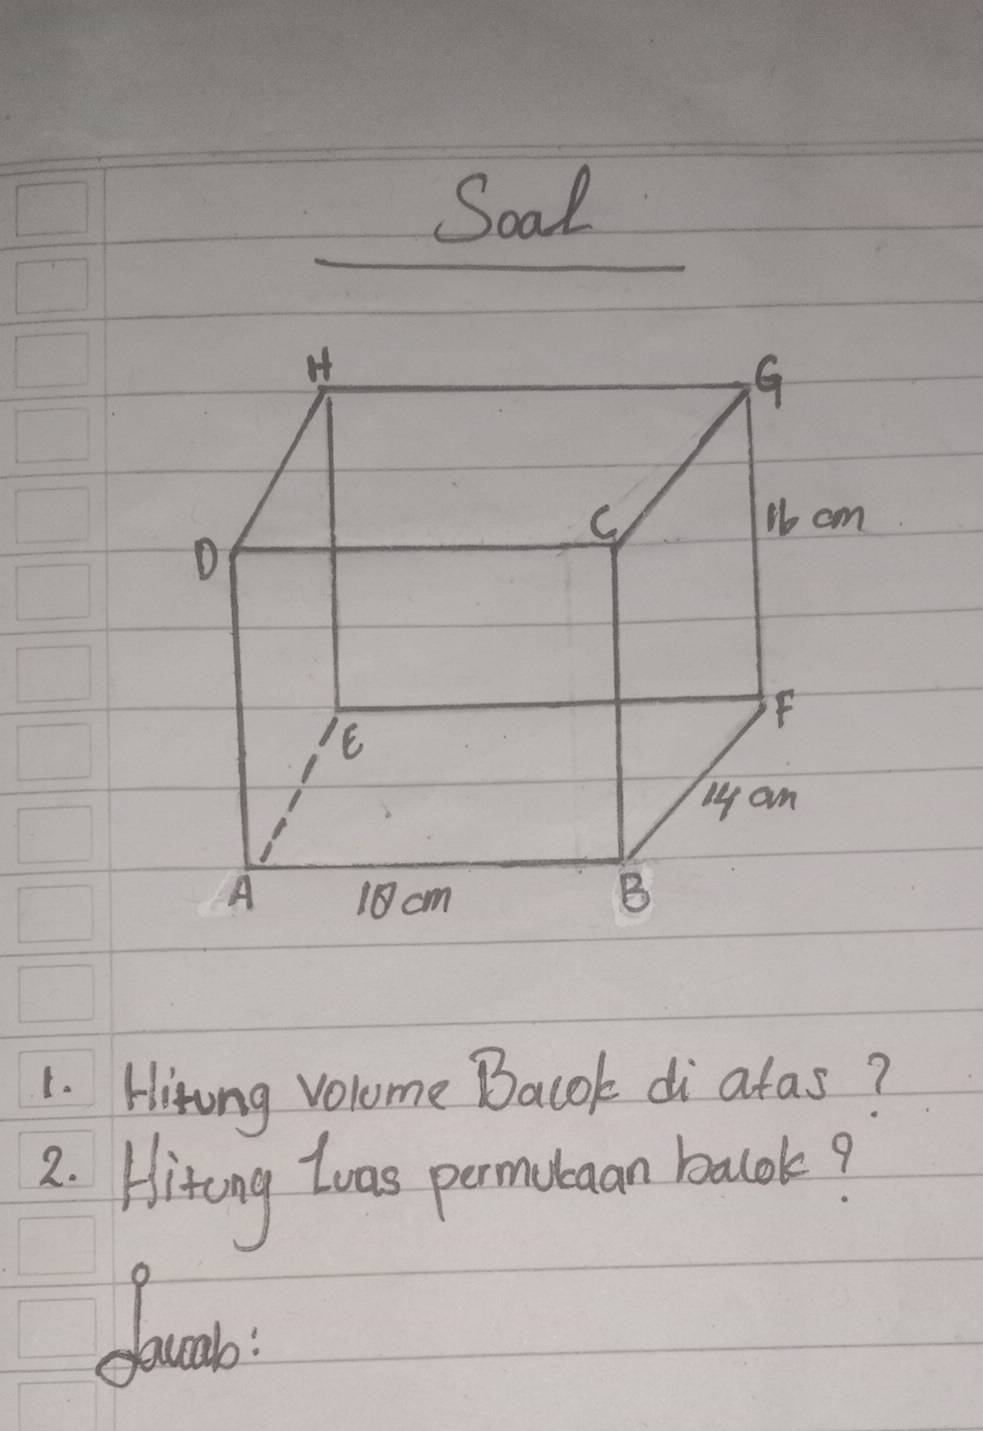 Soal
H
G
C
16 cm
D
F
E
14 cm
A
18 cm
B
1. Hitung volume Balok di atas ?
2. Hitung Luas permukaan balok ?
Jawab: